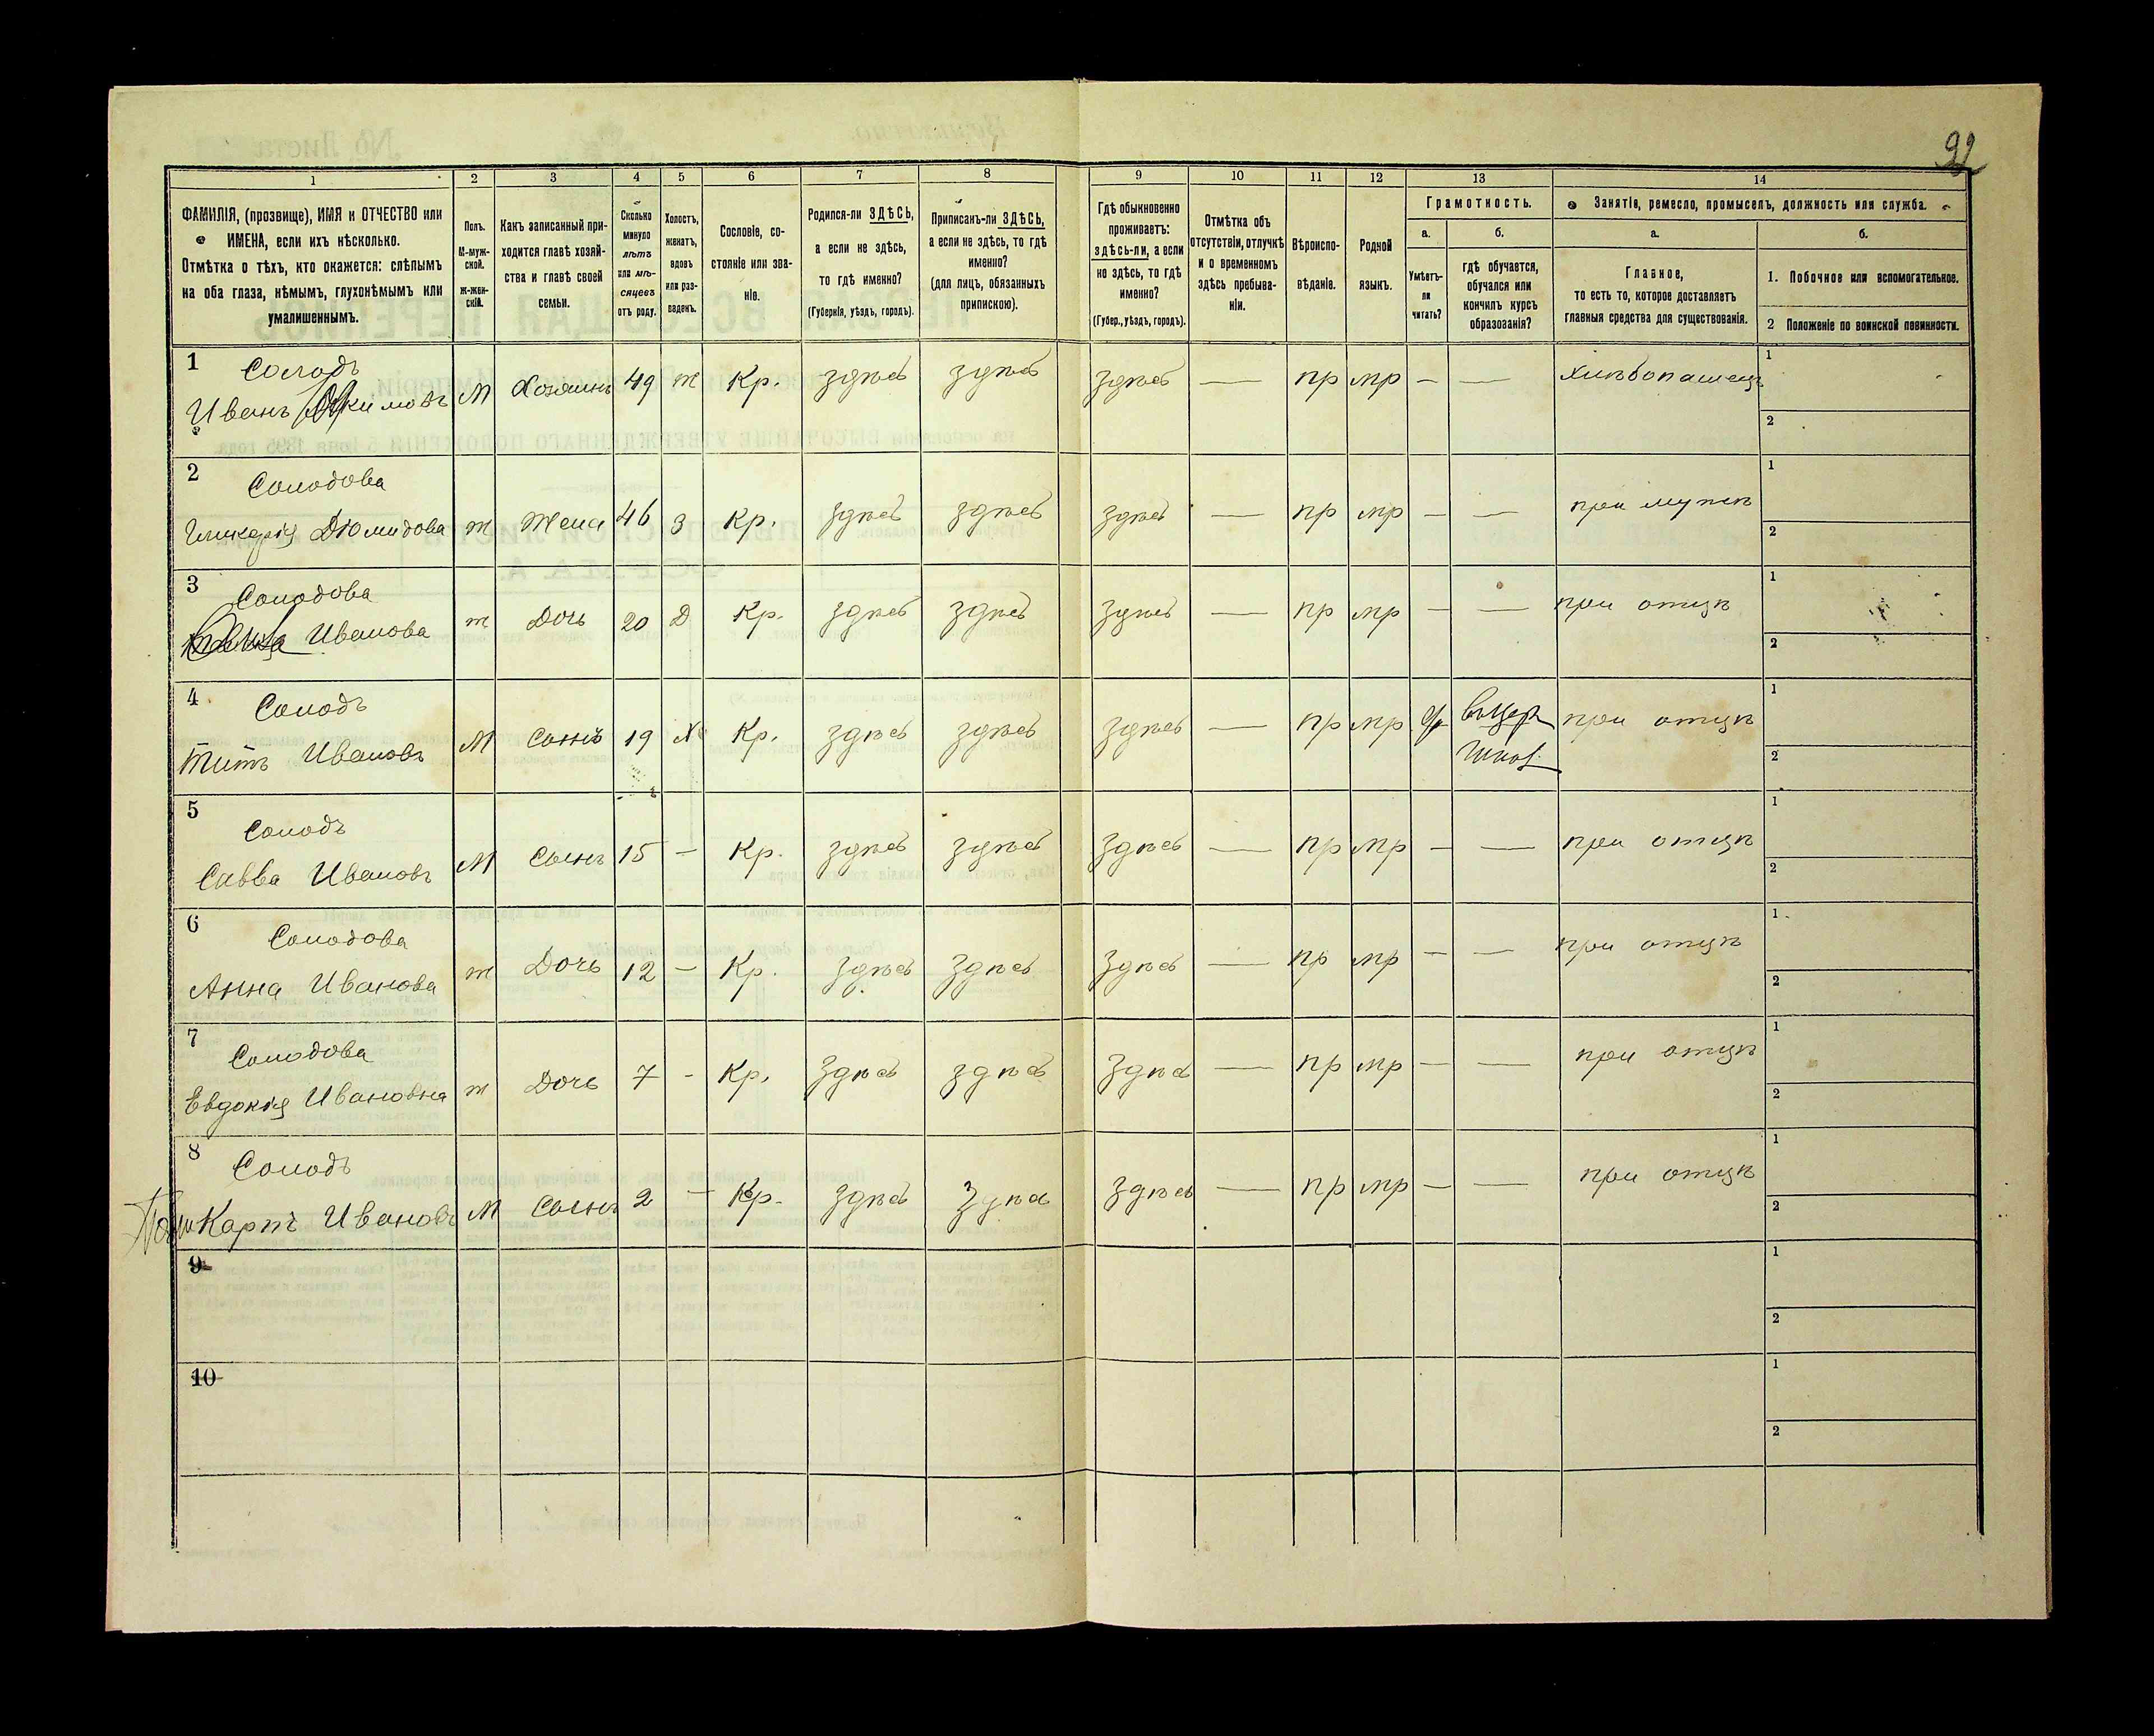 92
1 2 3 4 5 6 7 8 9 10 11 12 13 14
ФАМИЛІЯ, (прозвище), ИМЯ и ОТЧЕСТВО или
ИМЕНА, если ихъ нѣсколько.
Отмѣтка о тѣхъ, кто окажется: слѣпымъ
на оба глаза, нѣмымъ, глухонѣмымъ или
умалишеннымъ.
Полъ.
М-муж-
ской.
Ж-жен-
скій.
Какъ записанный при-
ходится главѣ хозяй-
ства и главѣ своей
семьи.
Сколько
минуло
лѣтъ
или мѣ-
сяцевъ
отъ роду.
Холостъ,
женатъ,
вдовъ
или раз-
веденъ.
Сословіе, со-
стояніе или зва-
ніе.
Родился-ли ЗДѢСЬ,
а если не здѣсь,
то гдѣ именно?
(Губернія, уѣздъ, городъ).
Приписанъ-ли ЗДѢСЬ,
а если не здѣсь, то гдѣ
именно?
(для лицъ, обязанныхъ
припискою).
Гдѣ обыкновенно
проживаетъ:
здѣсь-ли, а если
но здѣсь, то гдѣ
именно?
(Губер., уѣздъ, городъ).
Отмѣтка объ
отсутствіи, отлучкѣ
и о временномъ
здѣсь пребыва-
ніи.
Вѣроиспо-
вѣданіе.
Родной
языкъ.
Грамотность.
а.
Умѣетъ-
ли
читать?
б.
гдѣ обучается,
обучался или
кончилъ курсъ
образованія?
Занятіе, ремесло, промыселъ, должность или служба.
а.
Главное,
то есть то, которое доставляетъ
главныя средства для существованія.
б.
1. Побочное или вспомогательное.
2 Положеніе по воинской повинности.
1 Солодъ
Иванъ М Хозяинъ 49 ж Кр. здѣсь здѣсь здѣсь — пр мр — — хлѣбопашецъ 1
2
2 Солодова
Гликерія Діомидова ж Жена 46 З Кр. здѣсь здѣсь здѣсь — пр мр — — при мужѣ 1
2
3 Солодова
Иванова ж Дочь 20 Д Кр. здѣсь здѣсь здѣсь — пр мр — — при отцѣ 1
2
4 Солодъ
Титъ Ивановъ М Сынъ 19 Х Кр. здѣсь здѣсь здѣсь — пр мр въ Цер. при отцѣ 1
Школ. 2
5 Солодъ
Савва Ивановъ М Сынъ 15 — Кр. здѣсь здѣсь здѣсь — пр мр — — при отцѣ 1
2
6 Солодова
Анна Иванова ж Дочь 12 — Кр. здѣсь здѣсь здѣсь — пр мр — — при отцѣ 1
2
7 Солодова
Евдокія Ивановна ж Дочь 7 - Кр. здѣсь здѣсь здѣсь — пр мр — — при отцѣ 1
2
8 Солодъ
Поликарпъ Ивановъ М Сынъ 2 — Кр. здѣсь здѣсь здѣсь — пр мр — — при отцѣ 1
2
9 1
2
10 1
2